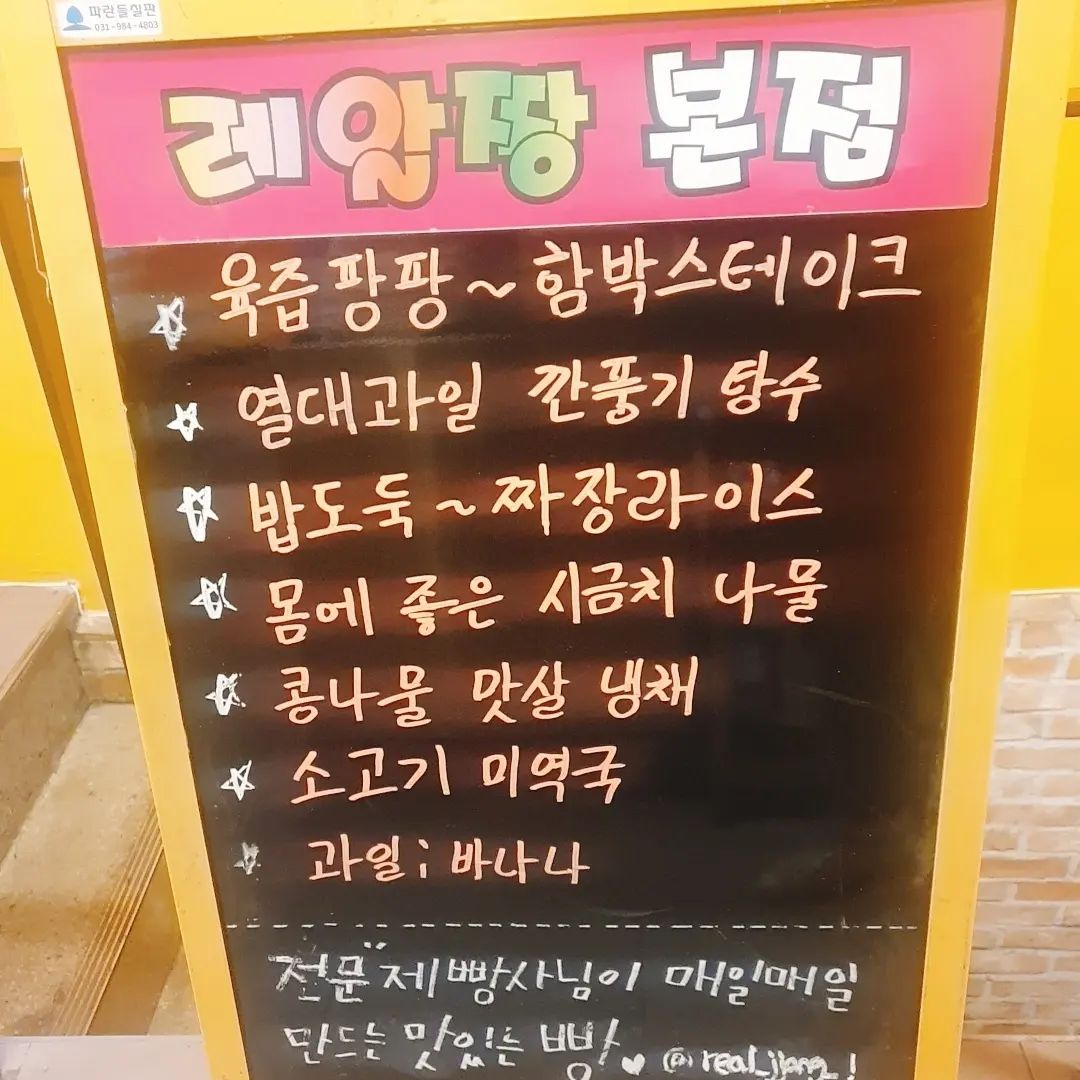 파란들실판
031-984-4803
레알짱 본점
육즙팡팡~함박스테이크
열대과일 깐풍기 탕수
밥도둑~짜장라이스
몸에 좋은 시금치 나물
콩나물 맛살 냉채
소고기 미역국
과일; 바나나
전문 제빵사님이 매일매일
만드는 맛있는 빵♥ @real_jjang_!